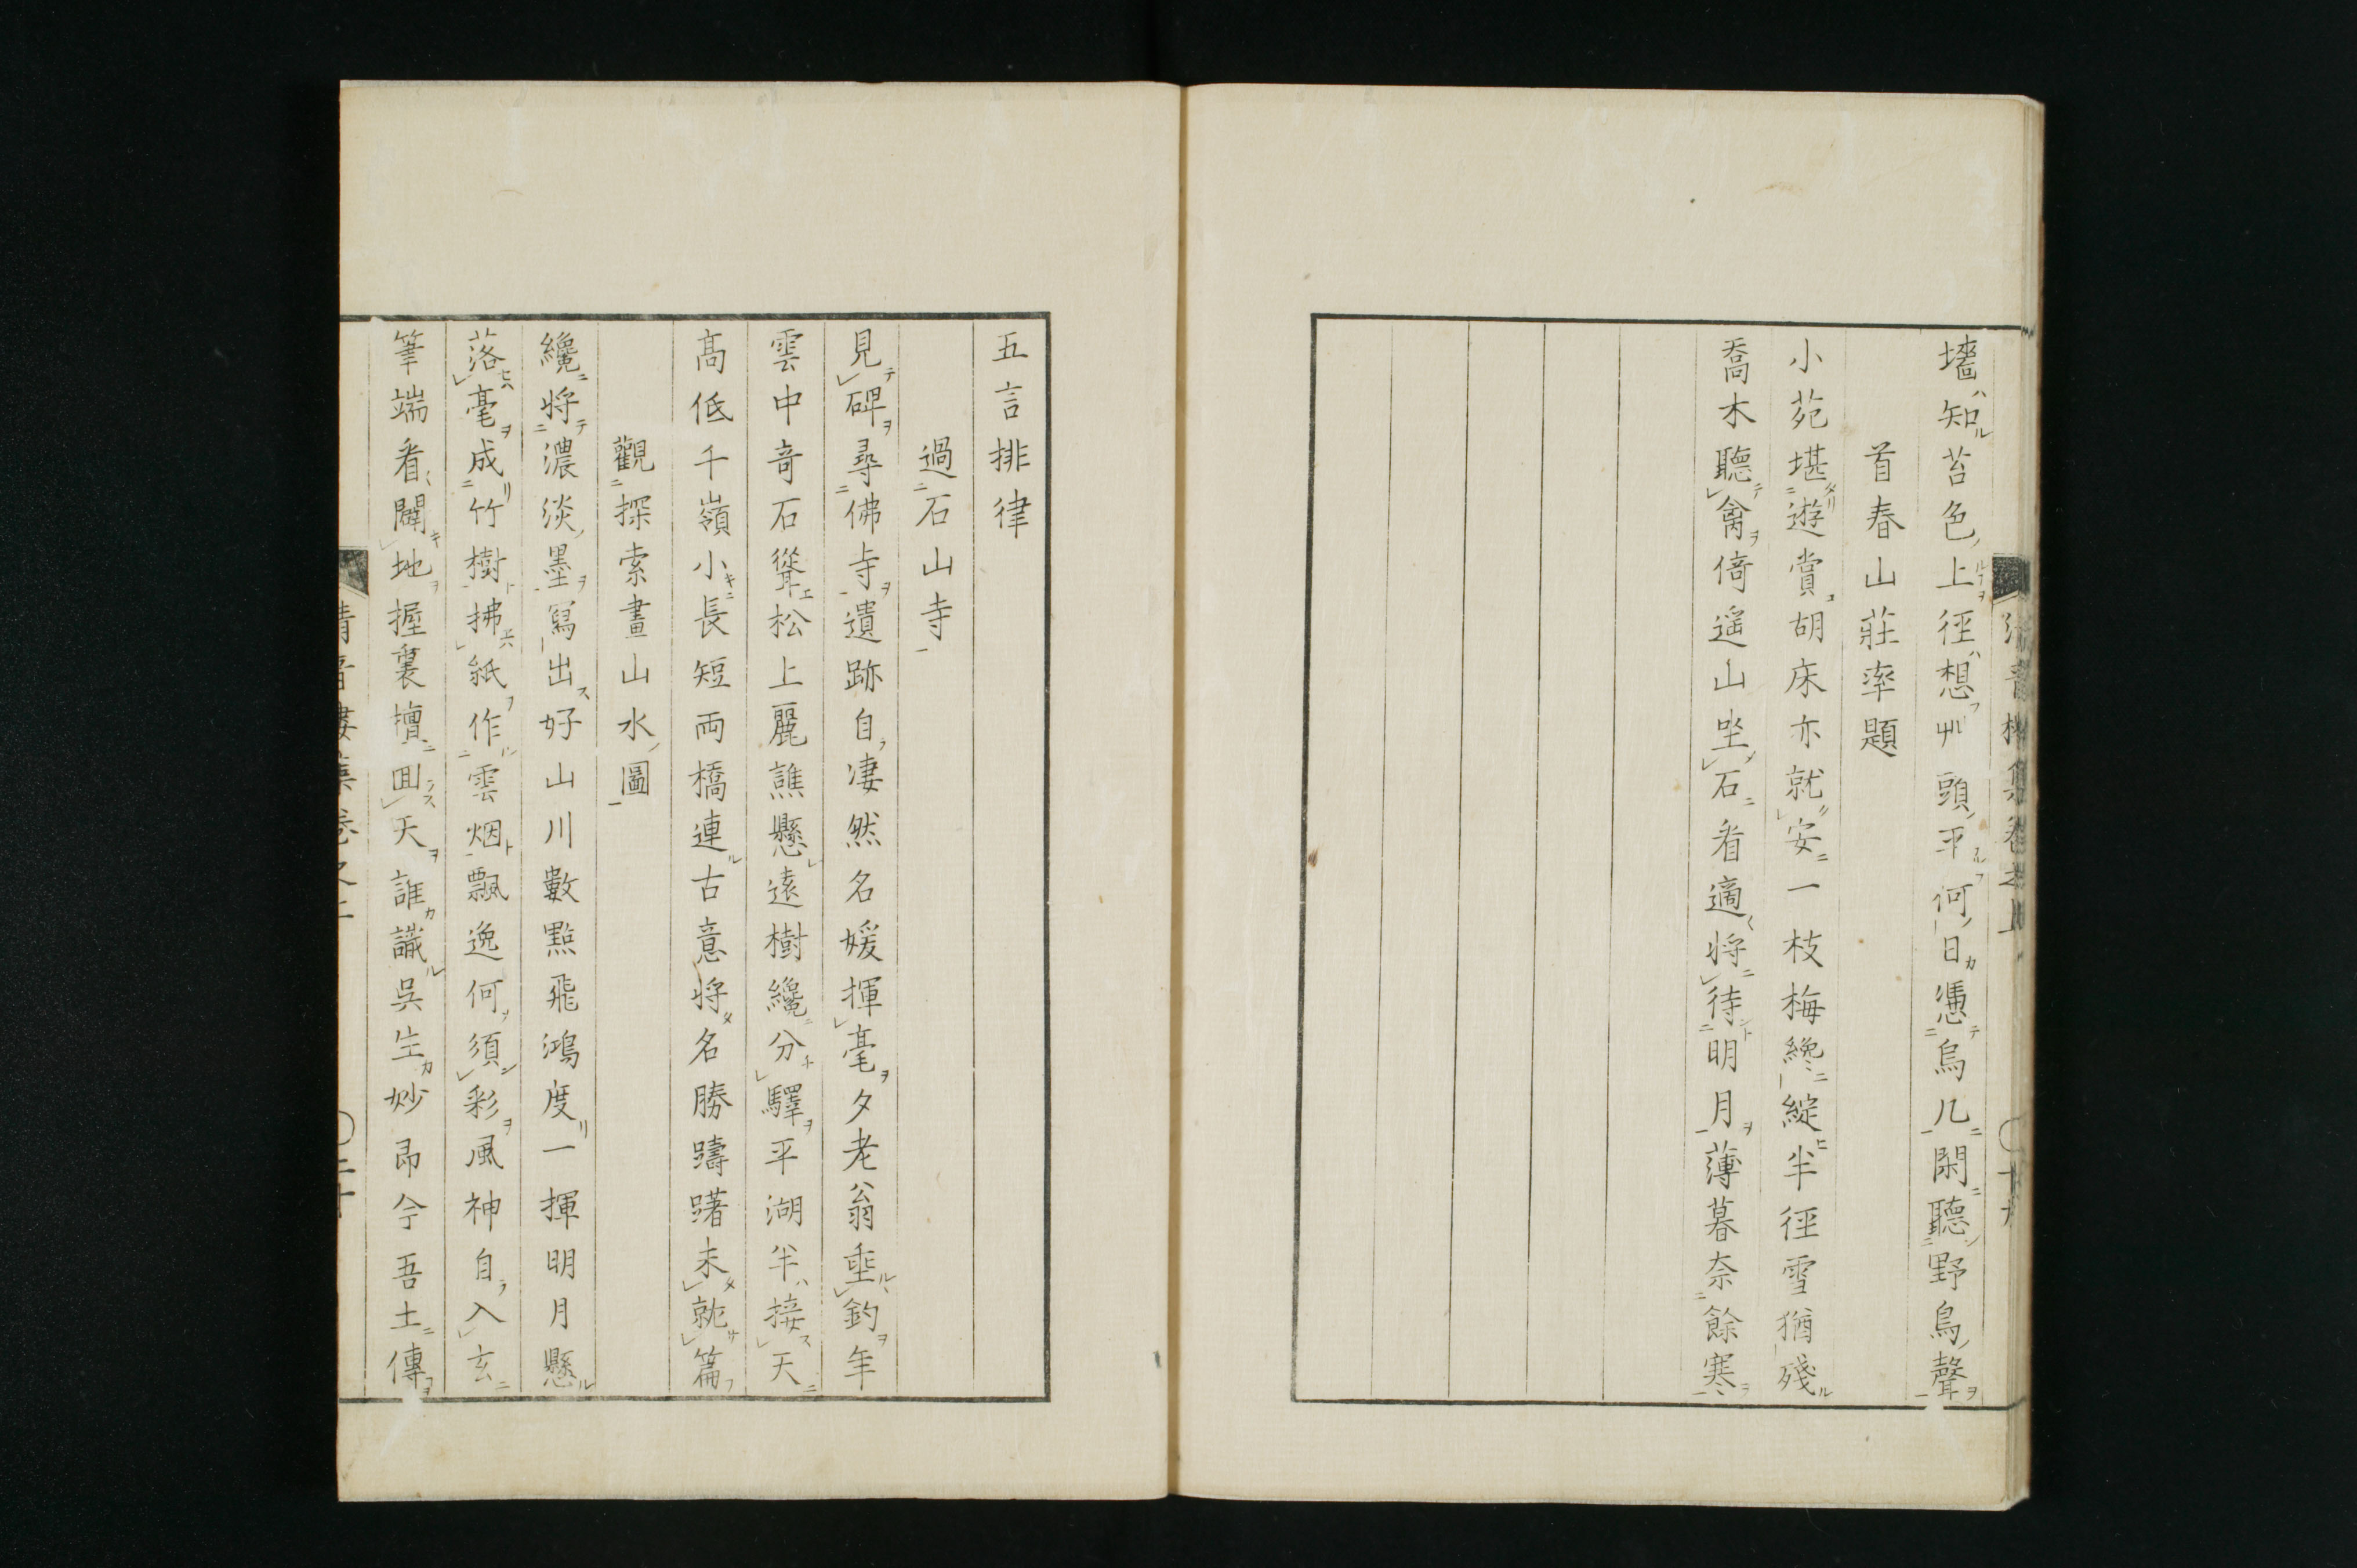 墻知苔色上徑想艸頭平何日憑烏几閑聽野鳥聲
首春山莊率題
小苑堪遊賞胡床亦就安一枝梅纔綻半徑雪猶殘
喬木聽禽倚遥山坐石看適將待明月薄暮奈餘寒
五言排律
過石山寺
見碑尋佛寺遺跡自凄然名媛揮毫夕老翁垂釣年
雲中奇石聳松上麗譙懸遠樹纔分驛平湖半接天
高低千嶺小長短両橋連古意將名勝躊躇未就篇
觀探索畫山水圖
纔將濃淡墨寫出好山川數點飛鴻度一揮明月懸
落毫成竹樹拂紙作雲烟飄逸何須彩風神自入玄
筆端看闢地握裏擅回天誰識吳生妙即今吾土傳